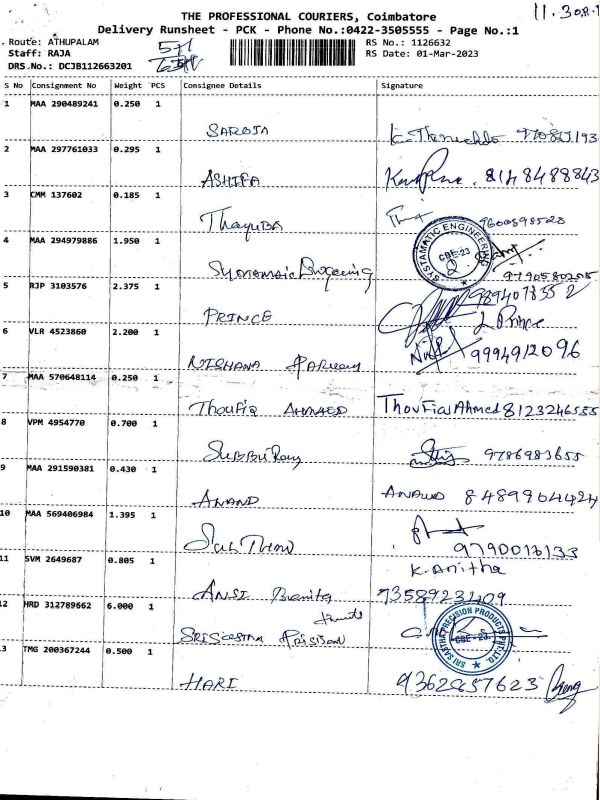 THE PROFESSIONAL COURIERS, Coimbatore
Delivery Runsheet - PCK - Phone No.:0422-3505555 - Page No.:1
Route: ATHUPALAM
Staff: RAJA
DRS.No.: DCJB112663201
RS No.: 1126632
RS Date: 01-Mar-2023
S No Consignment No Weight PCS Consignee Details Signature
1 MAA 290489241 0.250 1
SAROJA
2 MAA 297761033 0.295 1
ASHIFA 8148488843
3 CMM 137602 0.185 1
Thayuba 9600898528
4 MAA 294979886 1.950 1
SYSTAMATIC ENGINEERING
CBE-23
9790580205
5 RJP 3103576 2.375 1
PRINCE J. Prince
6 VLR 4523860 2.200 1
NISHANA 9994912096
7 MAA 570648114 0.250 1
ThouFiq AHMAED ThouFiqAhmed 8123246555
8 VPM 4954770 0.700 1
9786983655
9 MAA 291590381 0.430 1
ANAND ANAND 8489964424
10 MAA 569406984 1.395 1
9790013133
11 SVM 2649687 0.805 1
K. Anitha
ANSI 9358923409
12 HRD 312789662 6.000 1
SRI SASTHA PRECISION PRODUCTS PVT. LTD.
CBE-23
13 TMG 200367244 0.500 1
HARI 9362857623